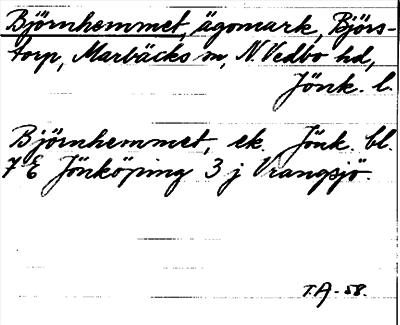 Björnhemmet, ägomark, Björs-
torp, Marbäcks sn, N. Vedbo hd,
Jönk. l.
Björnhemmet, ek. Jönk. bl.
7 E Jönköping 3 j Vrangsjö.
T.A-58.